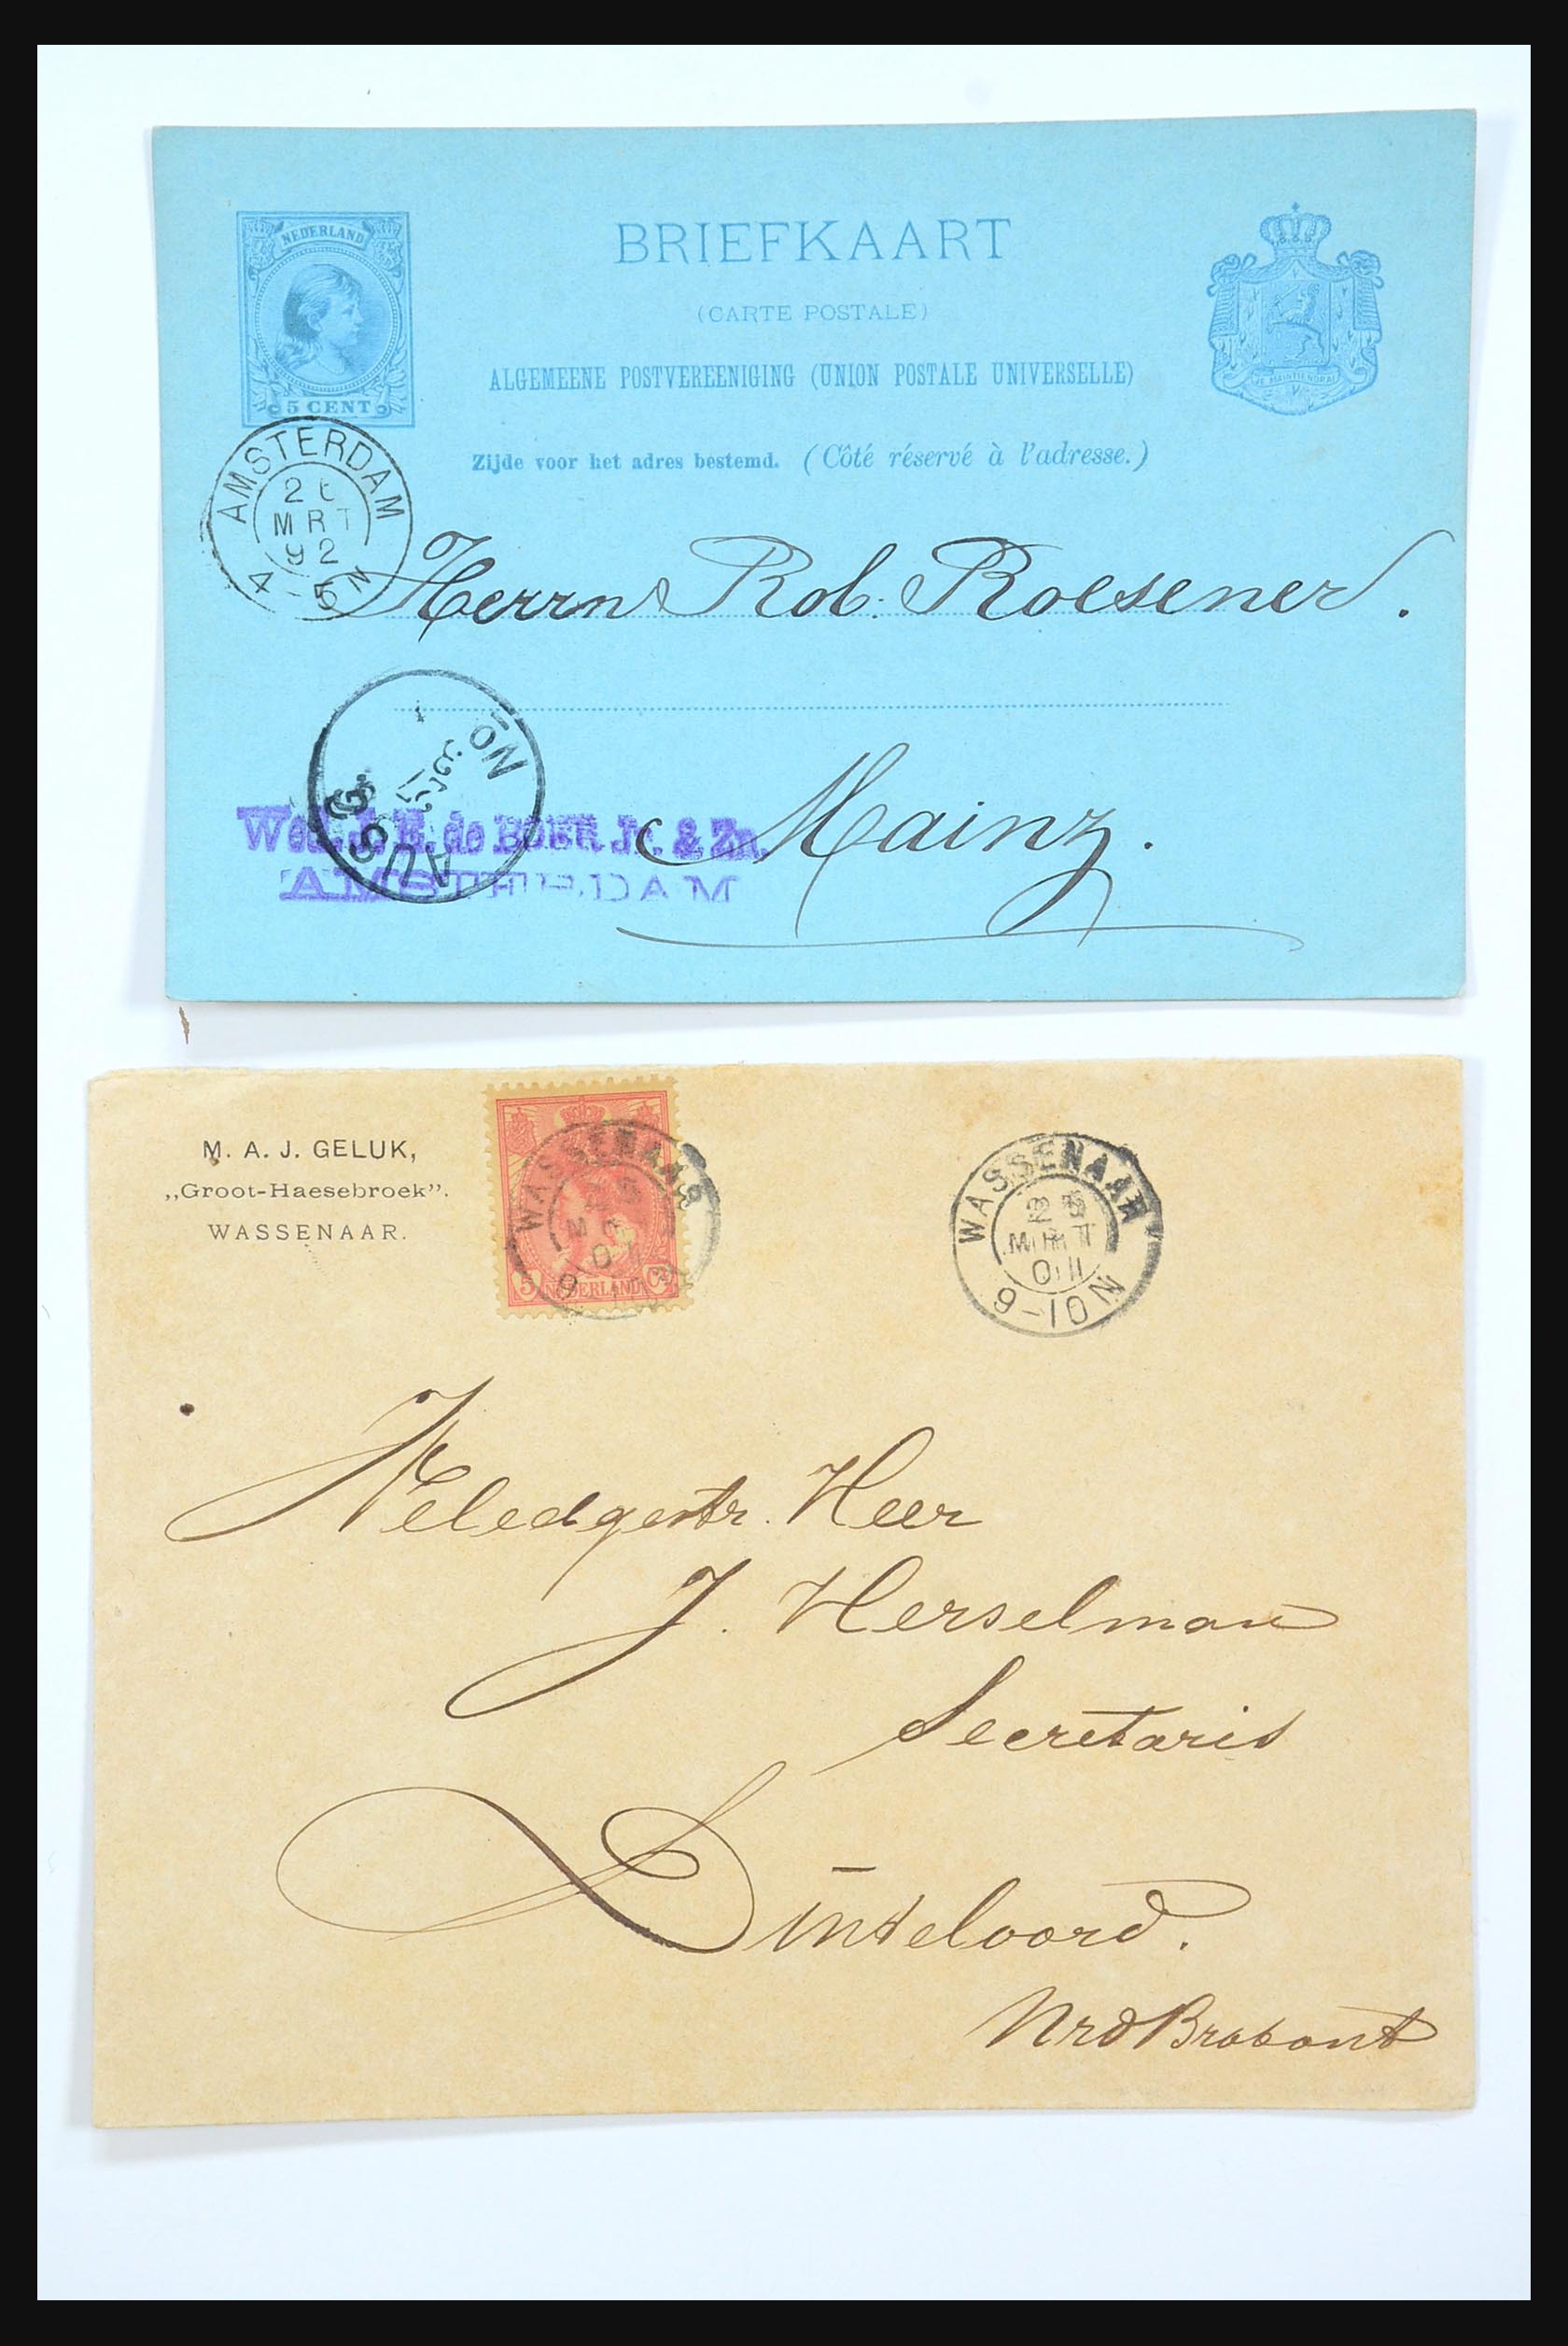 NEDERLAND
5 CENT
BRIEFKAART
(CARTE POSTALE)
ALGEMEENE POSTVEREENIGING (UNION POSTALE UNIVERSELLE)
Zijde voor het adres bestemd. (Côté réservé à l'adresse.)
JE MAINTIENDRAI
AMSTERDAM
MRT
92
4-5N
Herrn Rob. Roesener.
Mainz.
AUSG
Wed. J. H. de BOER Jr. & Zn.
AMSTERDAM
M. A. J. GELUK,
„Groot-Haesebroek".
WASSENAAR.
5 NEDERLAND Ct
WASSENAAR
01
WASSENAAR
MRT
01
9-10N
Weledgestr. Heer
J. Herselman
Secretaris
Dinteloord.
Nrd Brabant